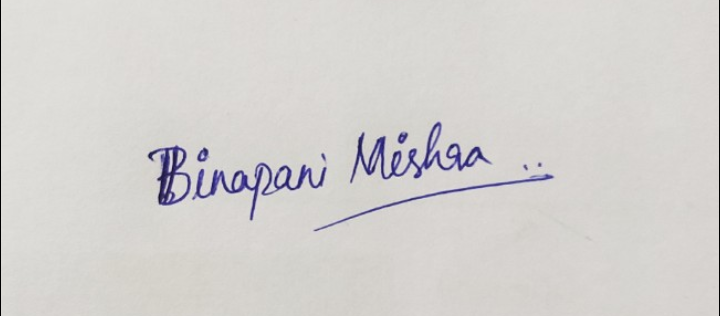 Binapani Mishra ..